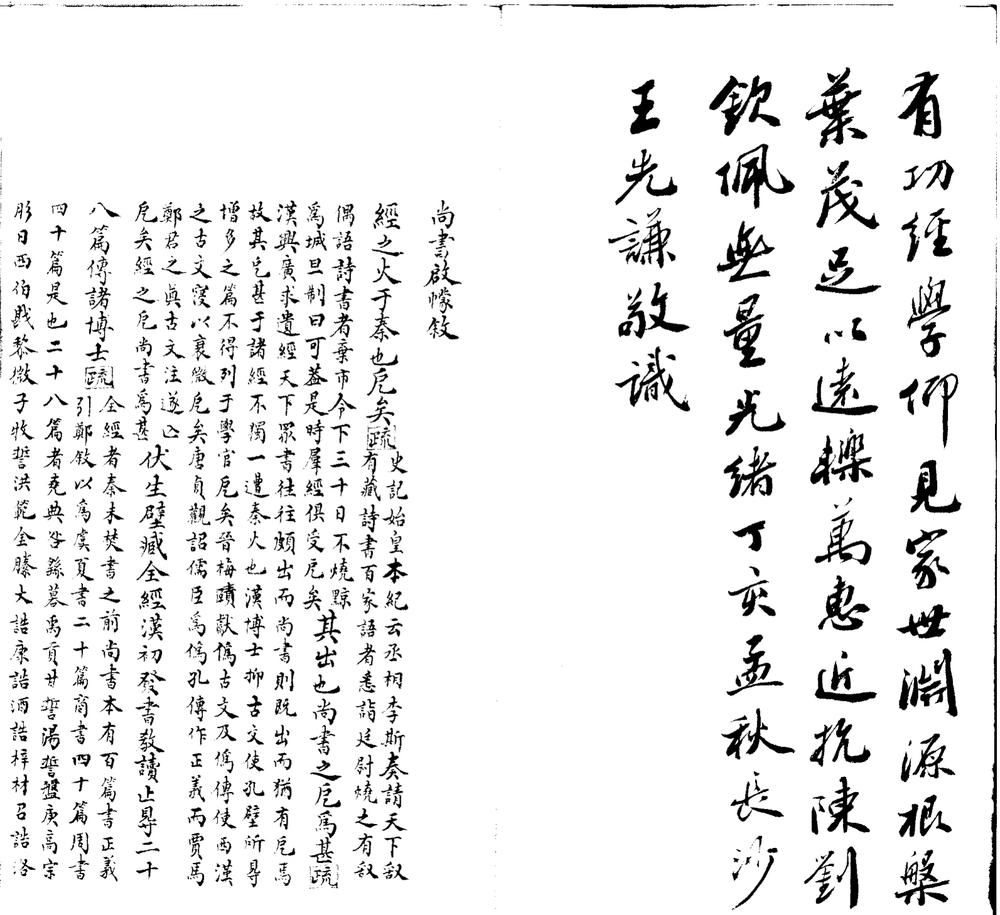 有功經學仰見家世淵源根槃
葉茂足以遠轢萬惠近抗陳劉
欽佩無量光緒丁亥孟秋長沙
王先謙敬識
尚書啟幪敘
經之火于秦也戹矣疏史記始皇本紀云丞相李斯奏請天下敢
有藏詩書百家語者悉詣廷尉燒之有敢
偶語詩書者棄市令下三十日不燒黥
爲城旦制曰可葢是時羣經俱受戹矣其出也尚書之戹爲甚疏
漢興廣求遺經天下眾書往往頗出而尚書則既出而猶有戹焉
故其戹甚于諸經不獨一遭秦火也漢博士抑古文使孔壁所㝵
增多之篇不得列于學官戹矣晉梅賾獻僞古文及僞傳使西漢
之古文寖以衰微戹矣唐貞觀詔儒臣爲僞孔傳作正義而賈馬
鄭君之眞古文注遂亾
戹矣經之戹尚書爲甚伏生壁臧全經漢初發書敎讀止㝵二十
八篇傳諸博士疏全經者秦未焚書之前尚書本有百篇書正義
引鄭敘以爲虞夏書二十篇商書四十篇周書
四十篇是也二十八篇者堯典咎繇暮禹貢甘誓湯誓盤庚高宗
肜日西伯戡黎微子牧誓洪範金縢大誥康誥酒誥梓材召誥洛